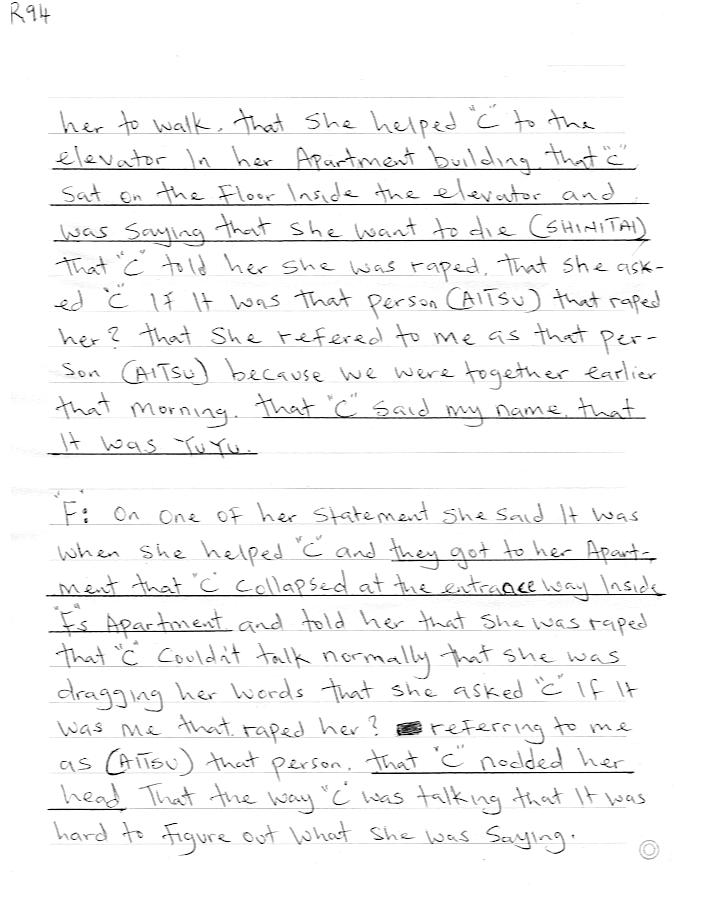 R94
her to walk. that She helped "C" to the
elevator In her Apartment building. that "C"
Sat on the Floor Inside the elevator and
was Saying that She want to die (SHINITAI)
That "C" told her She was raped. that She ask-
ed "C" If It was that person (AITSU) that raped
her? that She refered to me as that per-
Son (AITSU) because we were together earlier
that morning. that "C" Said my name. that
It was YuYu.
"F": On One of her Statement She Said It was
when She helped "C" and they got to her Apart-
ment that "C" Collapsed at the entrance way Inside
"F"s Apartment and told her that She was raped
that "C" Couldn't talk normally that she was
dragging her words that she asked "C" If It
was me that raped her? referring to me
as (AITSU) that person. that "C" nodded her
head That the way "C" was talking that It was
hard to Figure out What She was Saying.